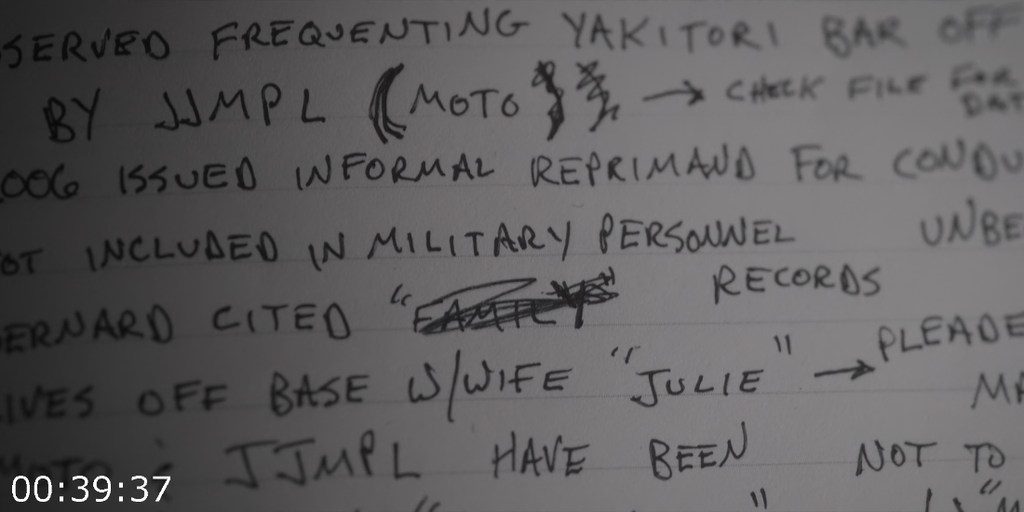 SERVED FREQUENTING YAKITORI BAR OFF
BY JJMPL (MOTO) → CHECK FILE FOR
DAT
006 ISSUED INFORMAL REPRIMAND FOR CONDU
OT INCLUDED IN MILITARY PERSONNEL UNBE
ERNARD CITED "FAMILY" RECORDS
IVES OFF BASE W/WIFE "JULIE" → PLEADE
MA
MOTO & JJMPL HAVE BEEN NOT TO
00:39:37